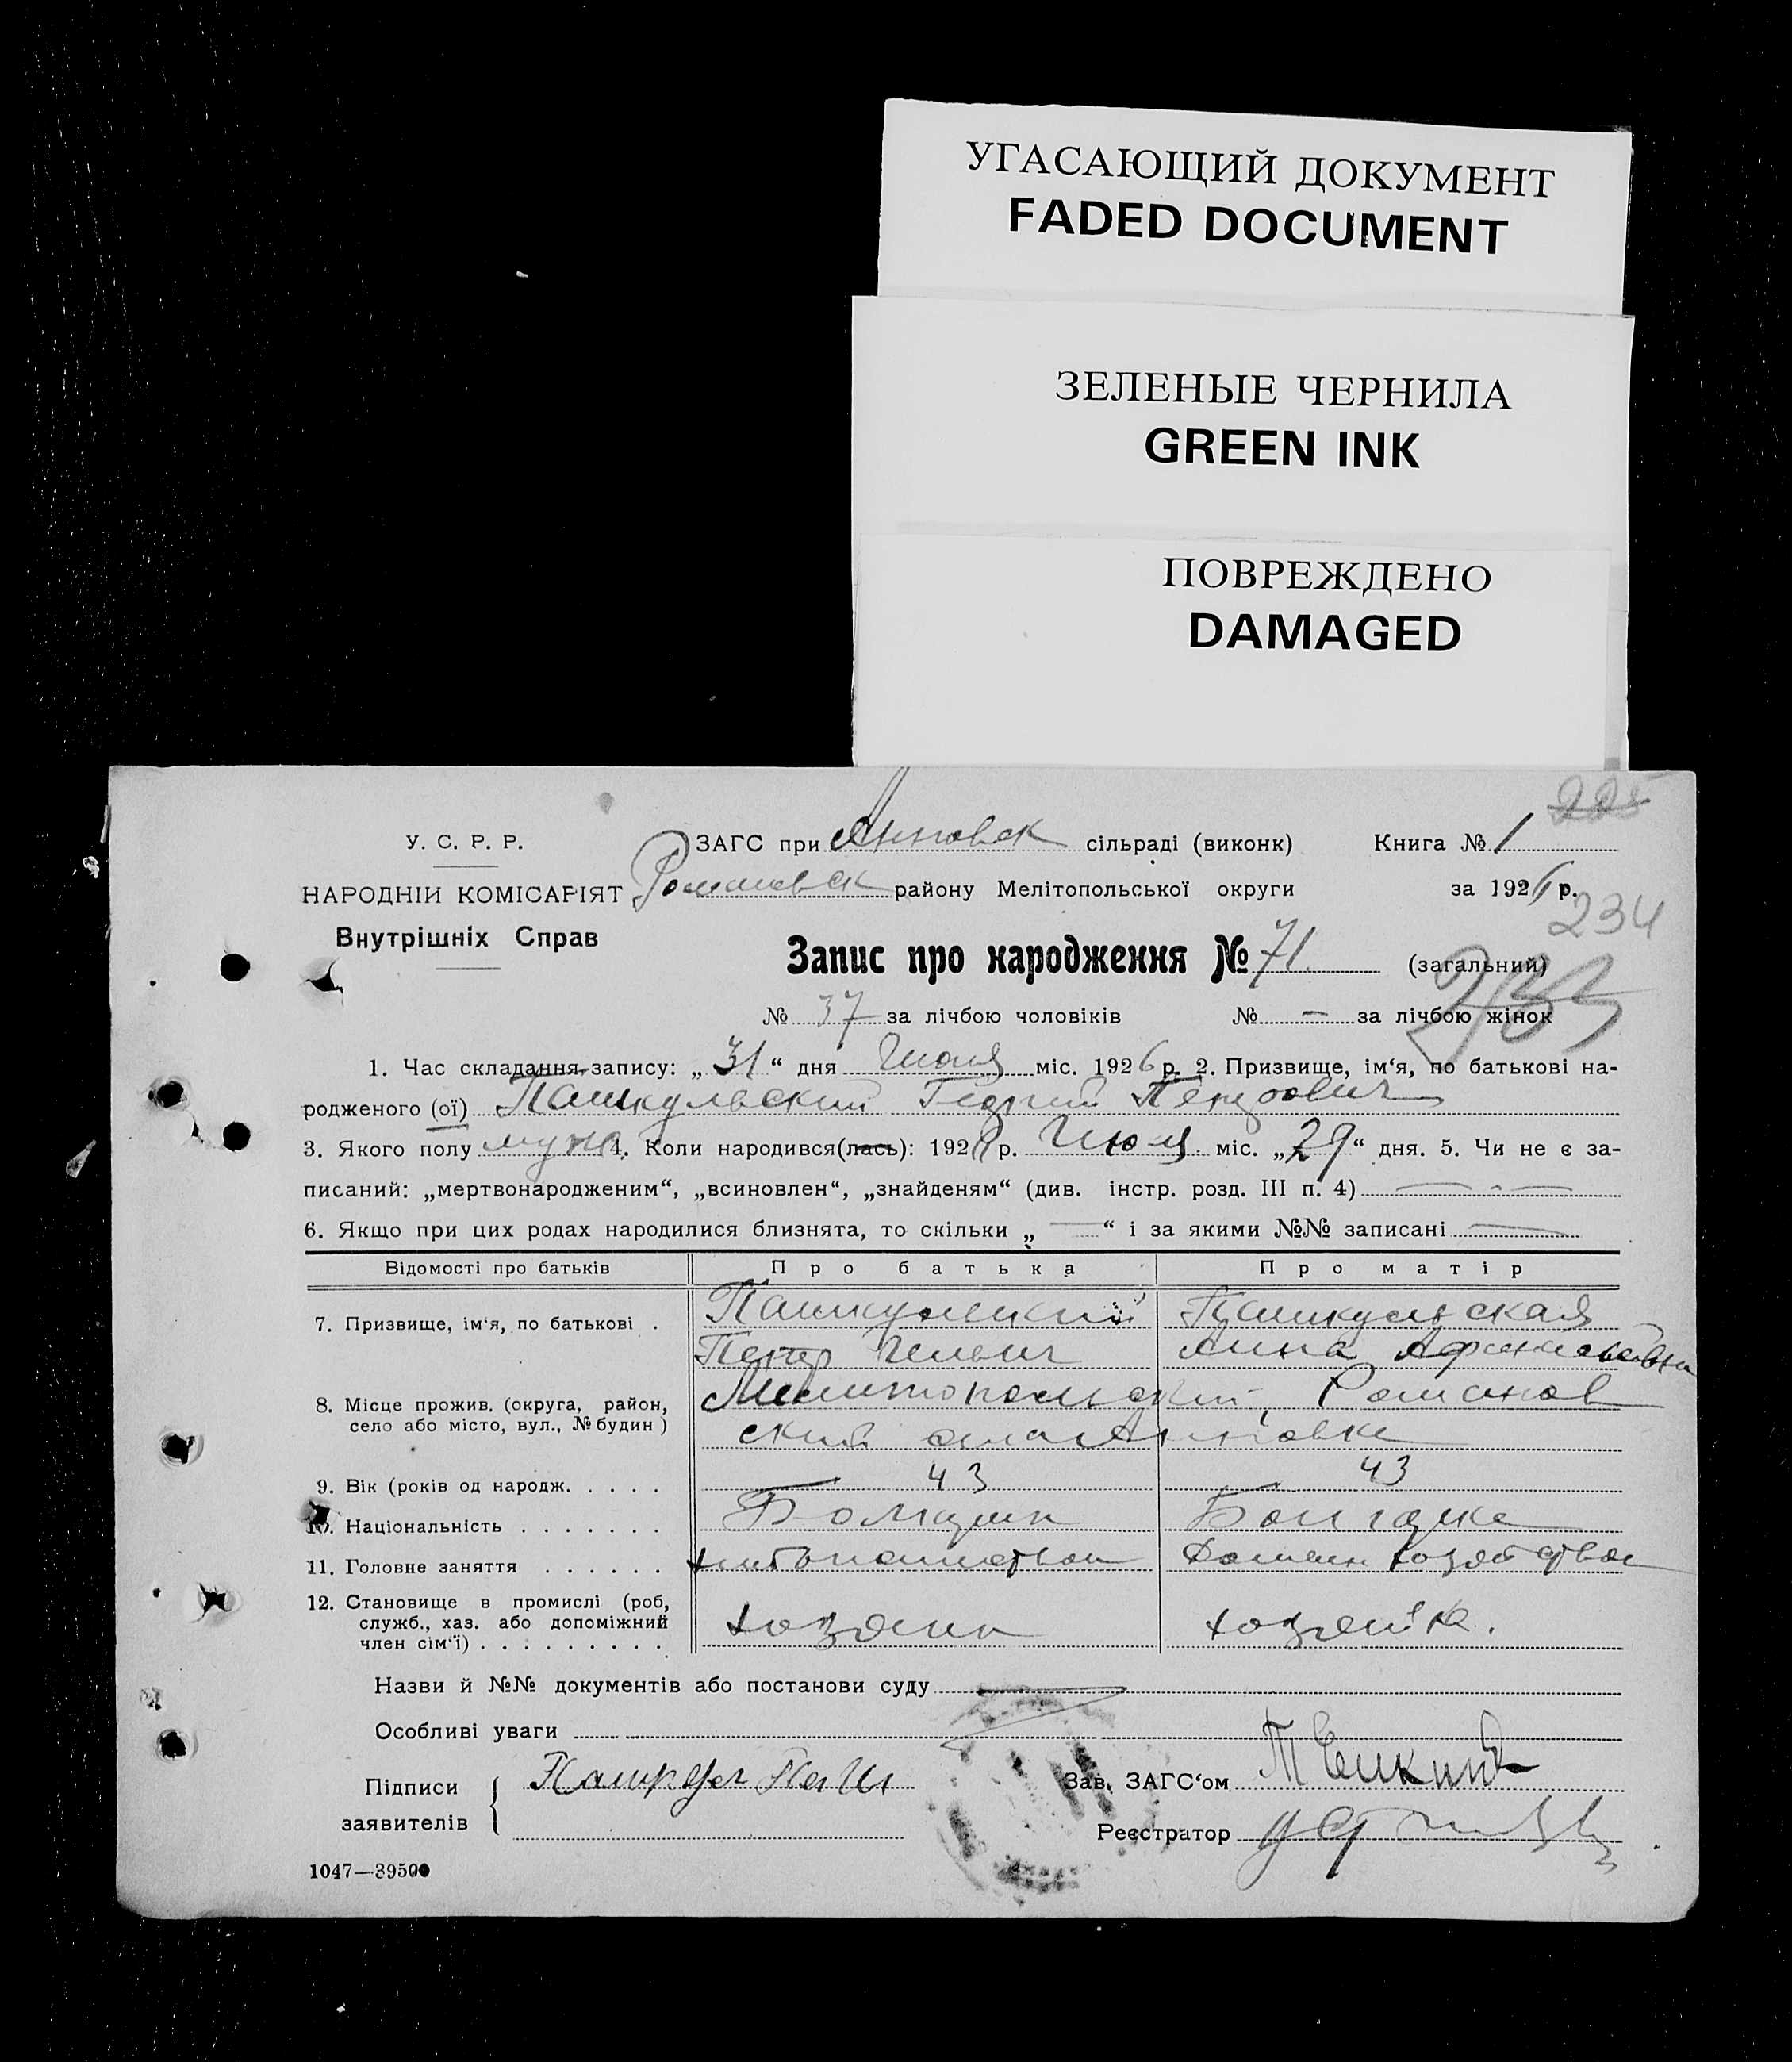 УГАСАЮЩИЙ ДОКУМЕНТ
FADED DOCUMENT
ЗЕЛЕНЫЕ ЧЕРНИЛА
GREEN INK
ПОВРЕЖДЕНО
DAMAGED
225
У. С. Р. Р.
ЗАГС при Анновск сільраді (виконк) Книга № 1
НАРОДНІЙ КОМІСАРІЯТ Романовск району Мелітопольської округи за 1926 р.
234
Внутрішніх Справ
Запис про народження № 71 (загальний)
233
№ 37 за лічбою чоловіків № — за лічбою жінок
1. Час складання запису: „31“ дня Июля міс. 1926 р. 2. Призвище, ім‘я, по батькові на-
родженого (ої) Пашкульский Георгий Петрович
3. Якого полу муж 4. Коли народився(лась): 1926 р. Июля міс. „29“ дня. 5. Чи не є за-
писаний: „мертвонародженим“, „всиновлен“, „знайденям“ (див. інстр. розд. III п. 4) —
6. Якщо при цих родах народилися близнята, то скільки „—“ і за якими №№ записані —
Відомості про батьків Про батька Про матір
7. Призвище, ім‘я, по батькові . Пашкульский Пашкульская
Петр Ильич Анна
8. Місце прожив. (округа, район, Мелитопольский, Романов
село або місто, вул., № будин) ский село Анновка
9. Вік (років од народж. . . . . 43 43
10. Національність . . . . . . . Болгарин Болгарка
11. Головне заняття . . . . . . хлебопашеством Домашн хозяйством
12. Становище в промислі (роб, служб., хаз. або допоміжний член сім‘ї) . . . . . . . . . хозяин хозяйка.
Назви й №№ документів або постанови суду
Особливі уваги
Підписи заявителів
Зав. ЗАГС‘ом
Реєстратор
1047—39500